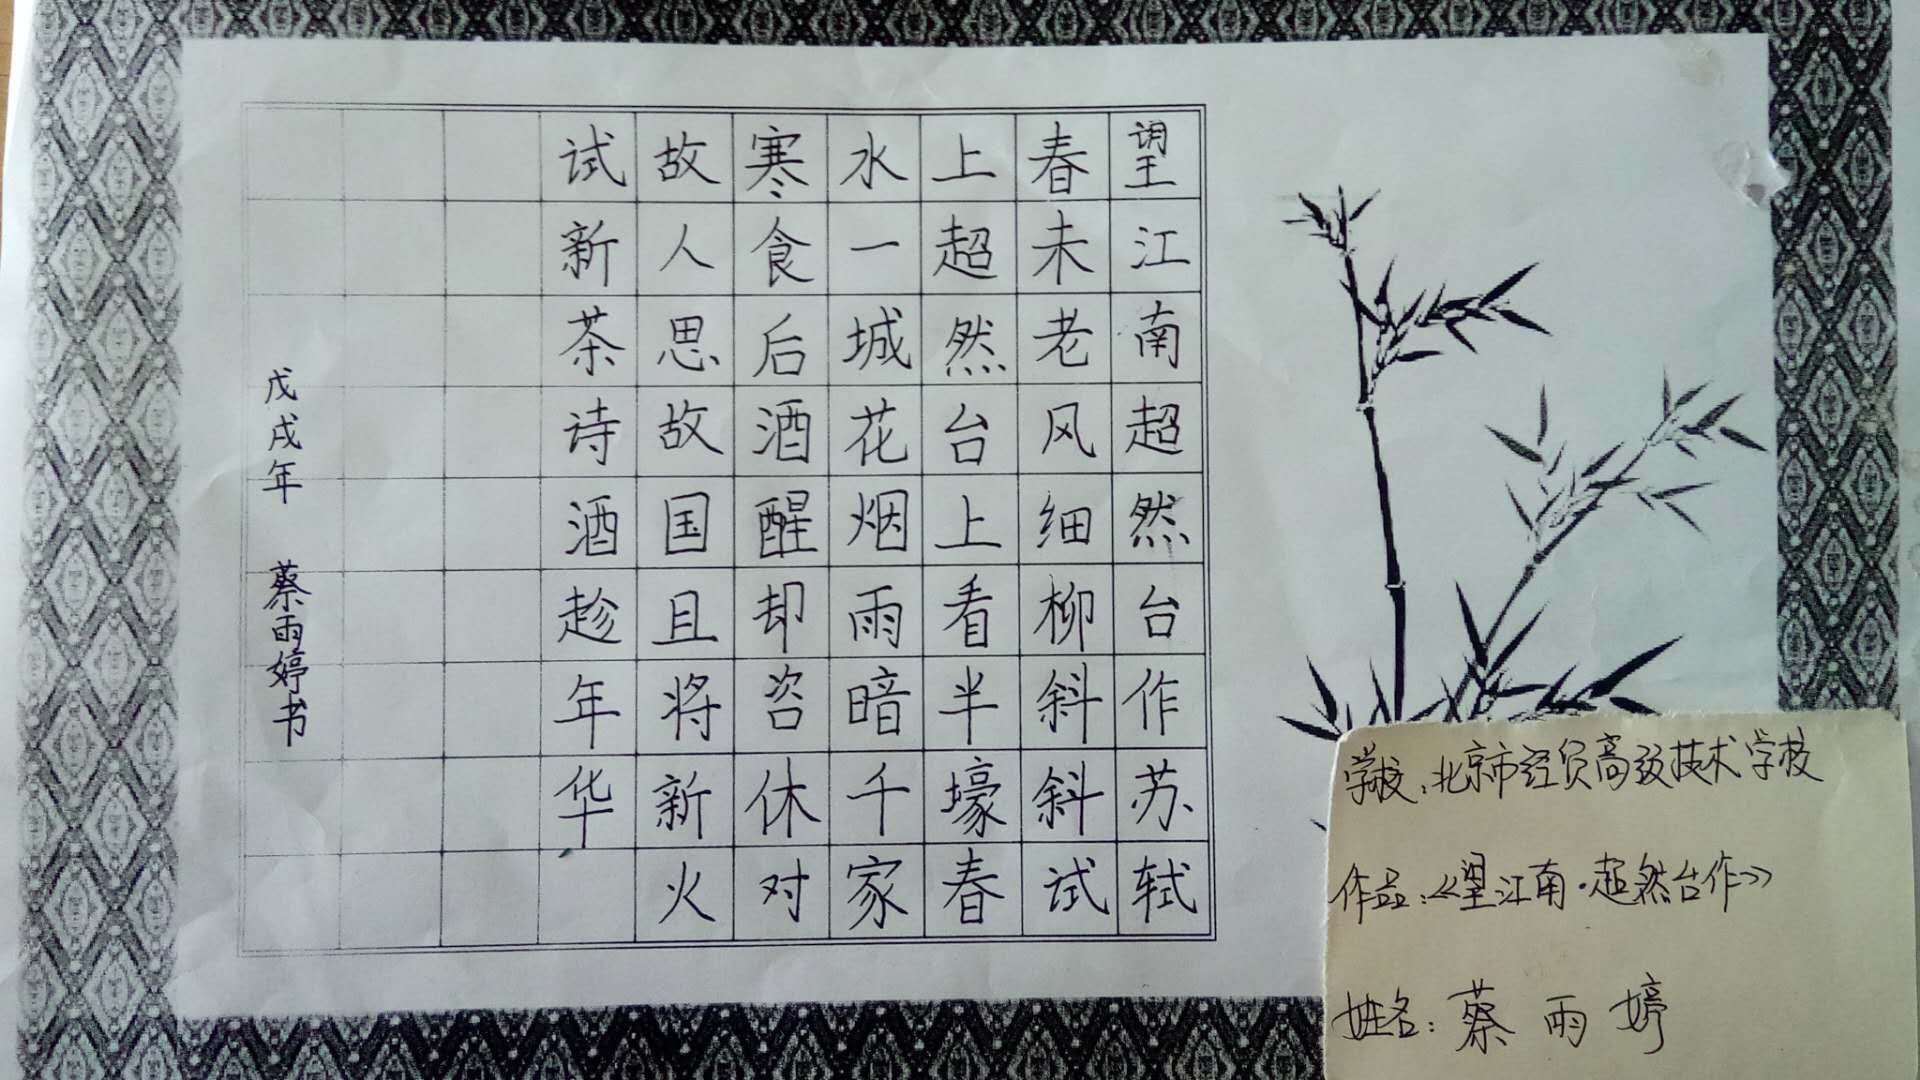 望江南超然台作苏轼
春未老风细柳斜斜试
上超然台上看半壕春
水一城花烟雨暗千家
寒食后酒醒却咨休对
故人思故国且将新火
试新茶诗酒趁年华
戊戌年 蔡雨婷书
学校：北京市经贸高级技术学校
作品：《望江南·超然台作》
姓名：蔡雨婷